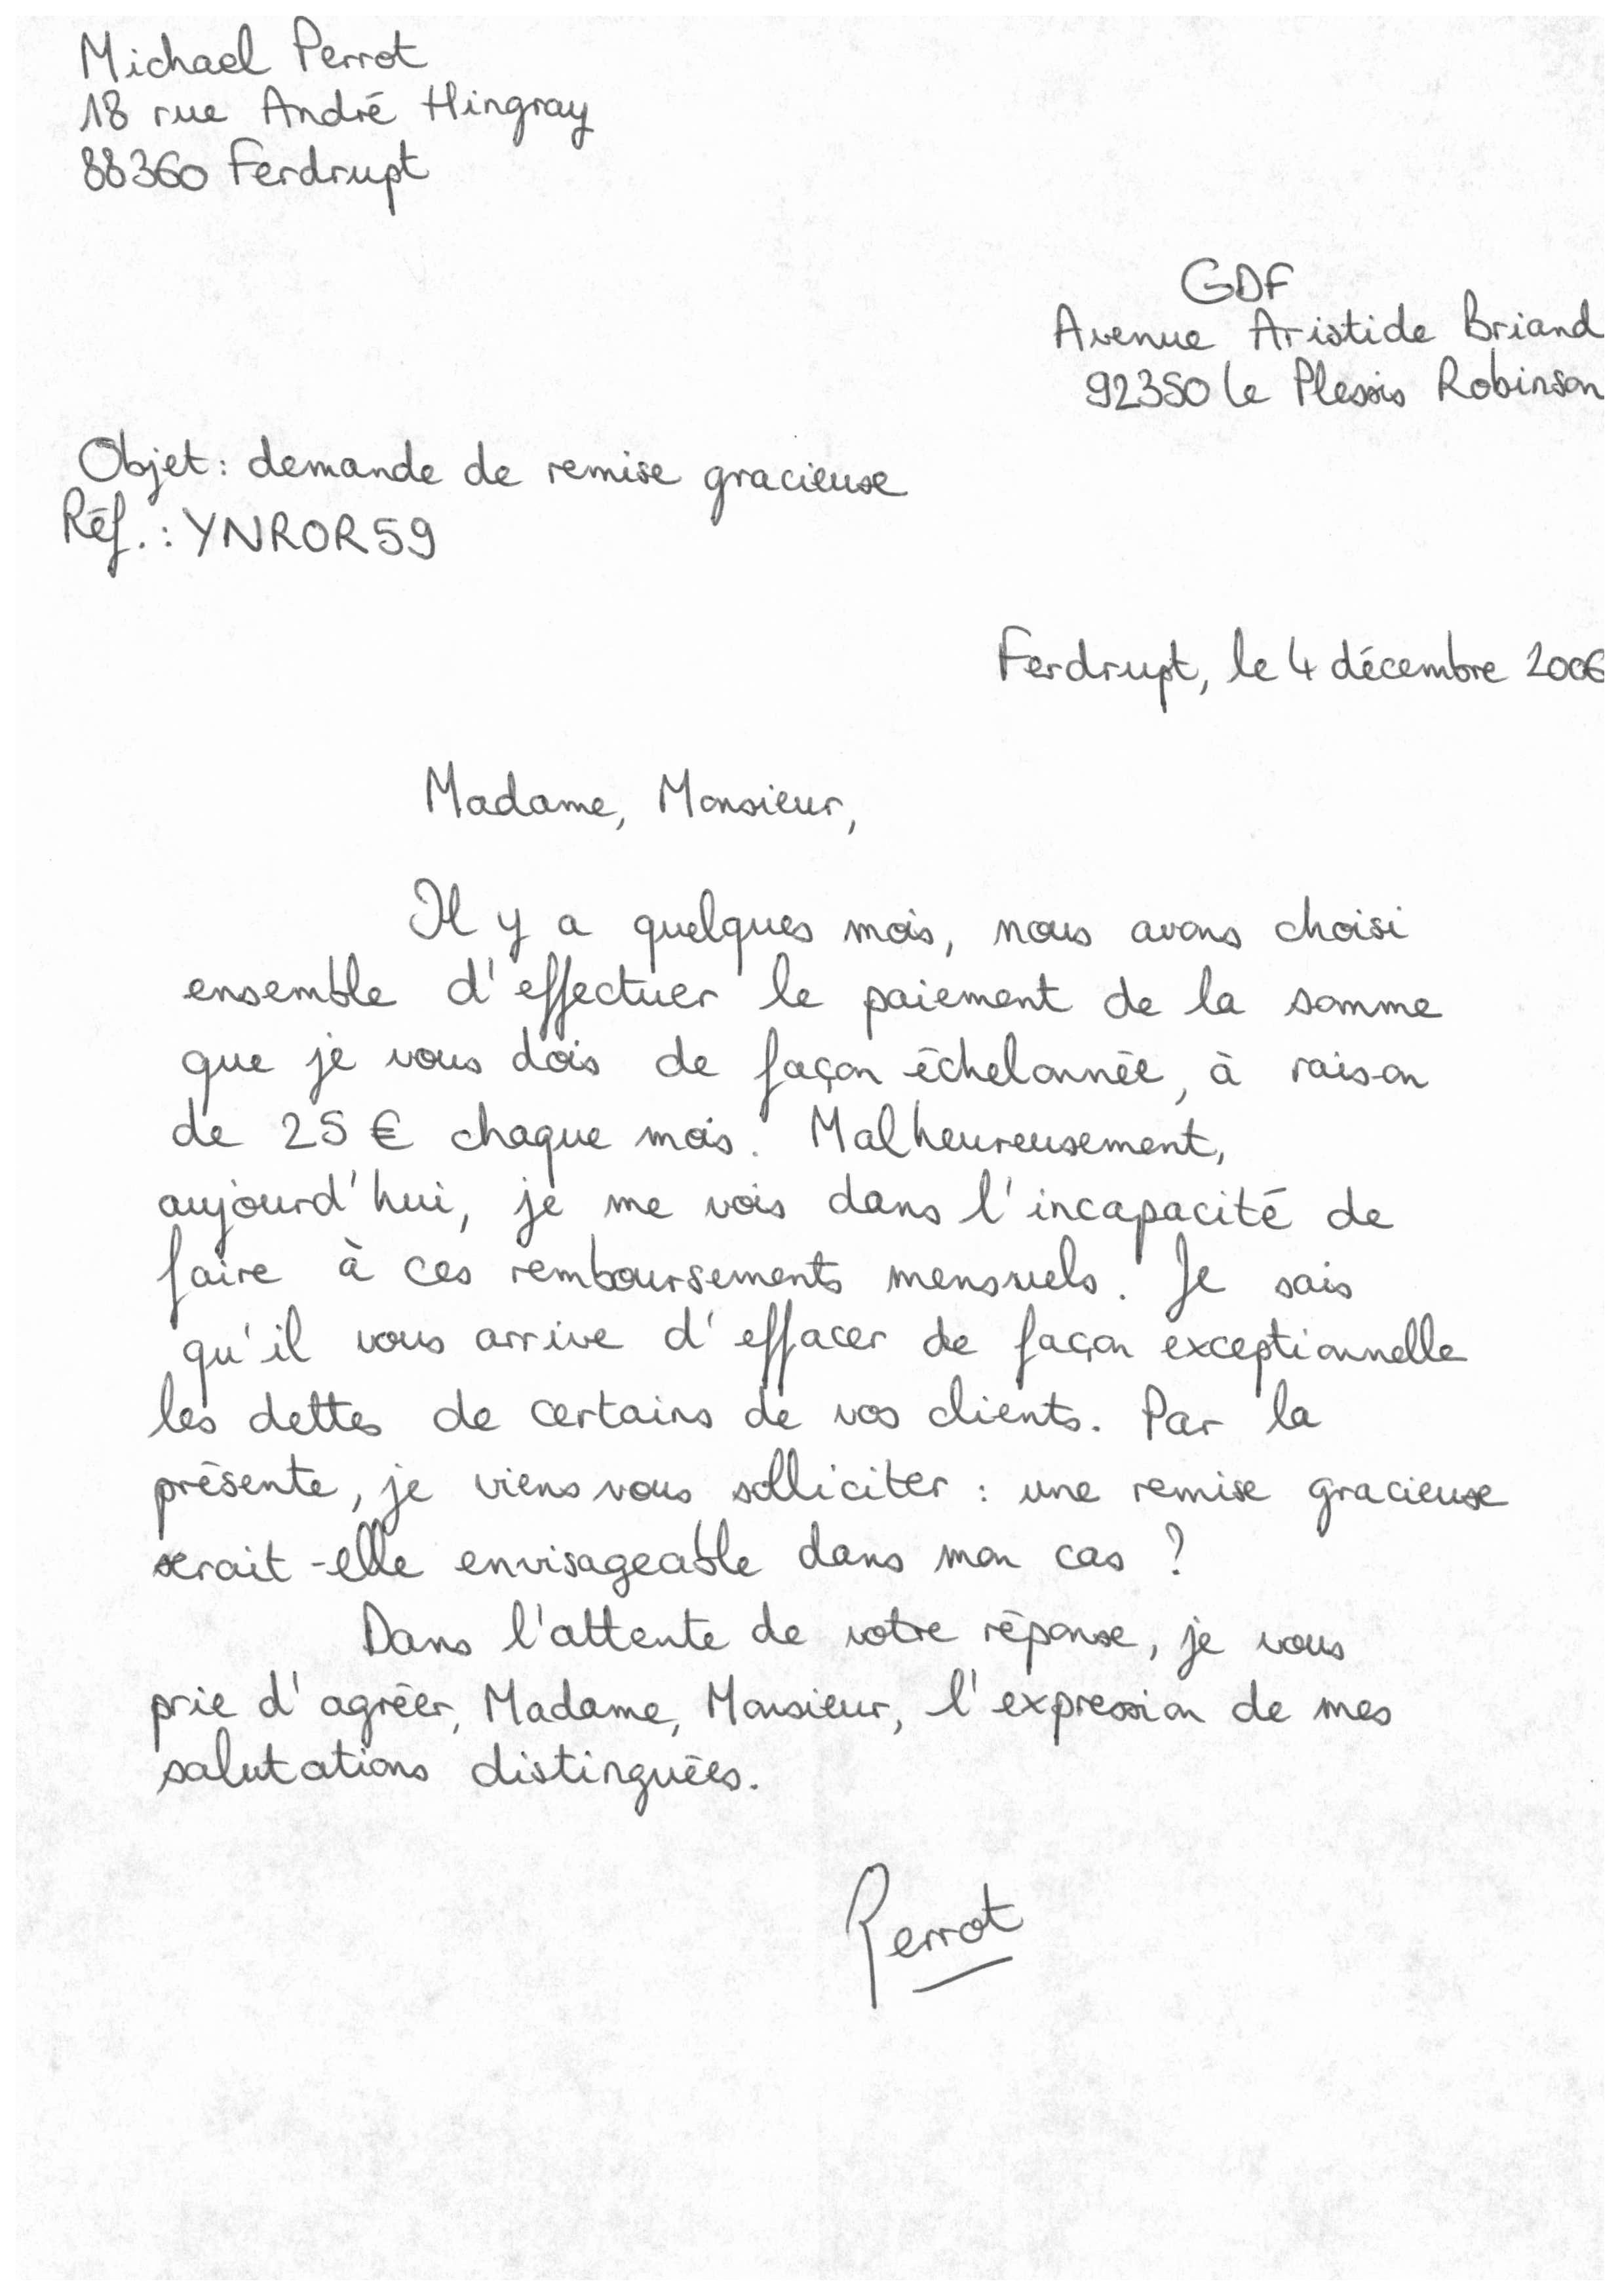 Michael Perrot
18 rue André Hingray
88360 Ferdrupt
GDF
Avenue Aristide Briand
92350 le Plessis Robinson
Objet : demande de remise gracieuse
Réf. : YNROR59
Ferdrupt, le 4 décembre 2006
Madame, Monsieur,
Il y a quelques mois, nous avons choisi
ensemble d'effectuer le paiement de la somme
que je vous dois de façon échelonnée, à raison
de 25 € chaque mois. Malheureusement,
aujourd'hui, je me vois dans l'incapacité de
faire à ces remboursements mensuels. Je sais
qu'il vous arrive d'effacer de façon exceptionnelle
les dettes de certains de vos clients. Par la
présente, je viens vous solliciter : une remise gracieuse
serait-elle envisageable dans mon cas ?
Dans l'attente de votre réponse, je vous
prie d'agréer, Madame, Monsieur, l'expression de mes
salutations distinguées.
Perrot